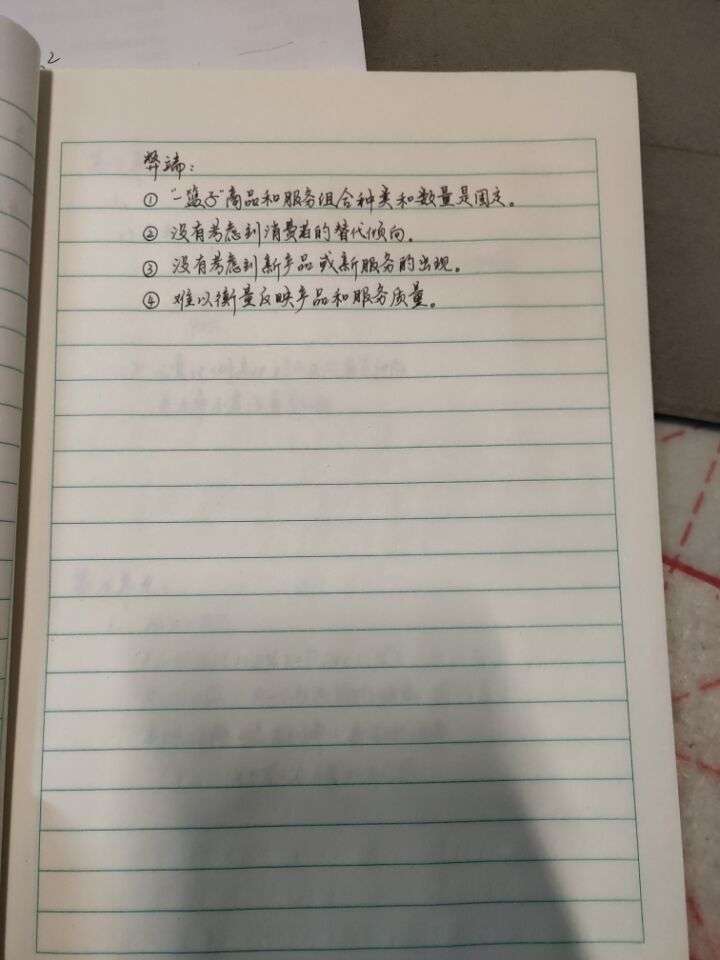 2
弊端：
① "一篮子"商品和服务组合种类和数量是固定。
② 没有考虑到消费者的替代倾向。
③ 没有考虑到新产品或新服务的出现。
④ 难以衡量反映产品和服务质量。